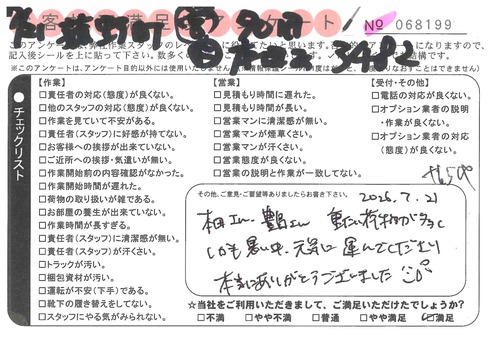 お客様満足アンケート
No 068199
記入後シールを上に貼って下さい。
※このアンケートは、アンケート目的以外には使用いたしません。
●チェックリスト
【作業】
□責任者の対応(態度)が良くない。
□他のスタッフの対応(態度)が良くない。
□作業を見ていて不安がある。
□責任者(スタッフ)に好感が持てない。
□お客様への挨拶が出来ていない。
□ご近所への挨拶・気遣いが無い。
□作業開始前の内容確認がなかった。
□作業開始時間が遅れた。
□荷物の取り扱いが雑である。
□お部屋の養生が出来ていない。
□作業時間が長すぎる。
□責任者(スタッフ)に清潔感が無い。
□責任者(スタッフ)が汗くさい。
□トラックが汚い。
□梱包資材が汚い。
□運転が不安(下手)である。
□靴下の履き替えをしてない。
□スタッフにやる気がみられない。
【営業】
□見積もり時間に遅れた。
□見積もり時間が長い。
□営業マンに清潔感が無い。
□営業マンが煙草くさい。
□営業マンが汗くさい。
□営業態度が良くない。
□営業の説明と作業が一致してない。
【受付・その他】
□電話の対応が良くない。
□オプション業者の説明
・作業が良くない。
□オプション業者の対応
(態度)が良くない。
その他、ご意見・ご要望等ありましたらお書き下さい。
2026.7.21
重たい荷物が多く
しかも暑い中、元気に運んでくださり
本当にありがとうございました
☆当社をご利用いただきまして、ご満足いただけたでしょうか?
□不満 □やや不満 □普通 □やや満足 ☑満足